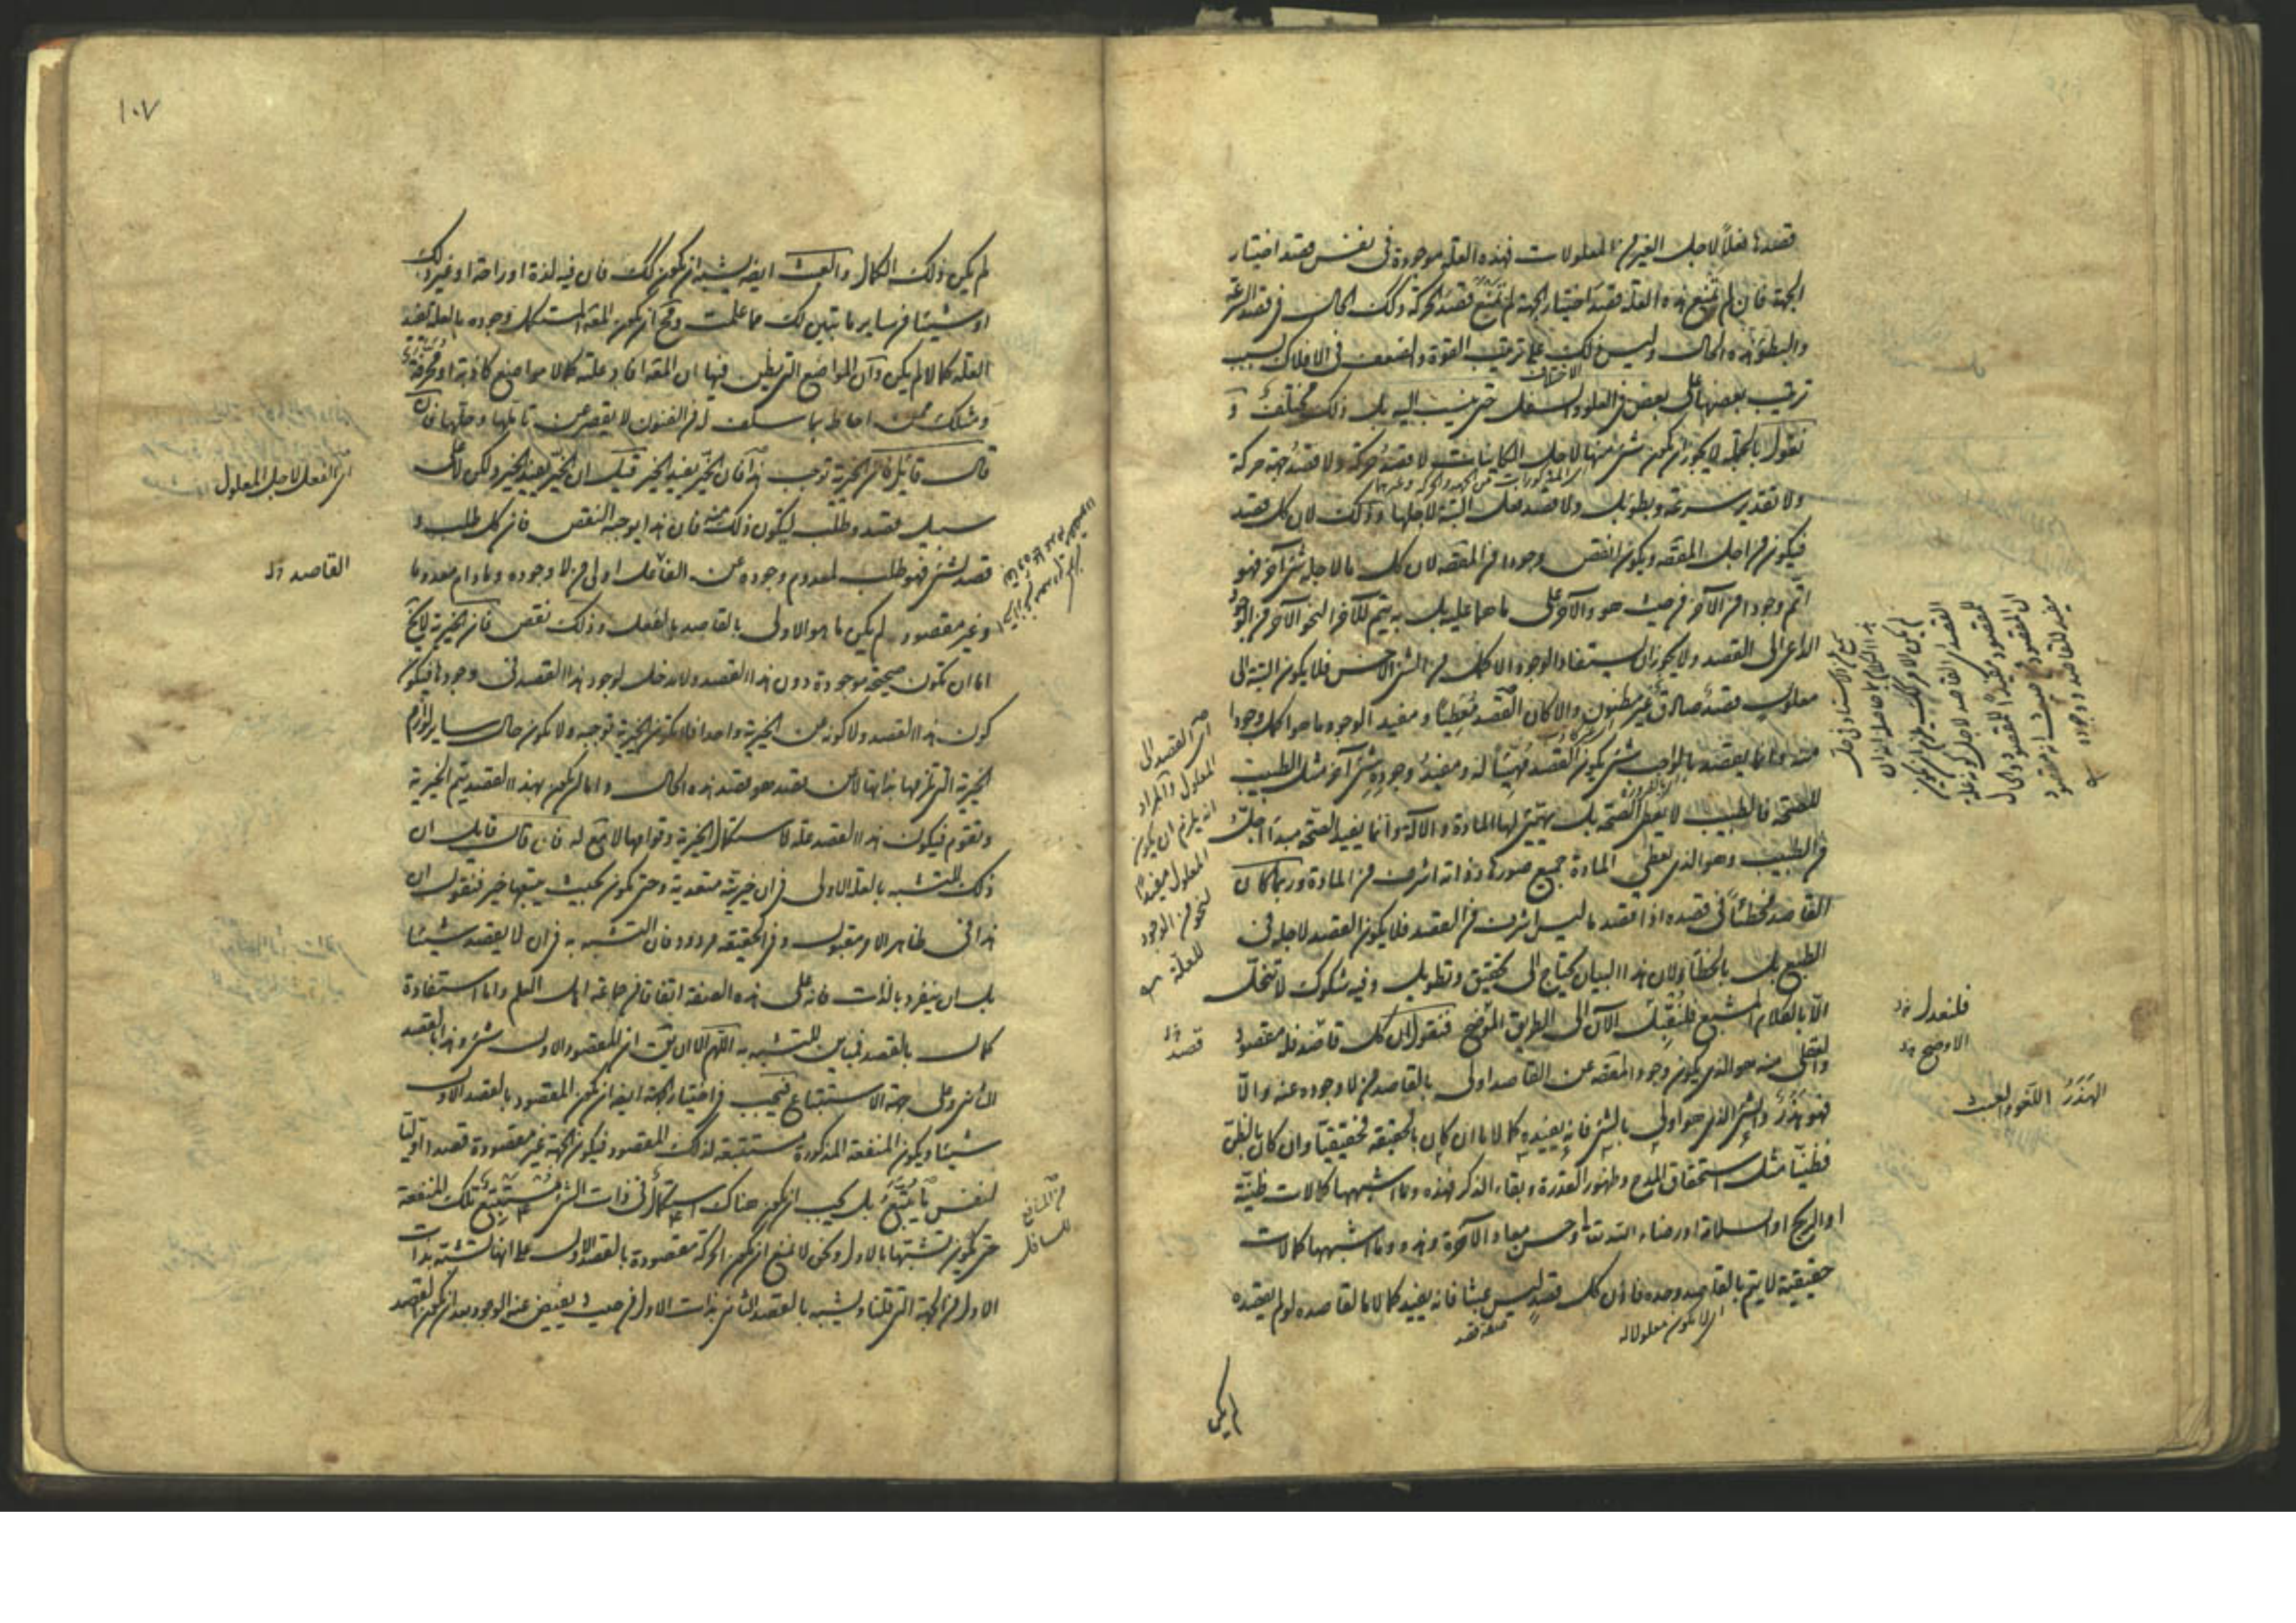 قصدها فعلاً لاجل الغير من المعلولات فهذه العلة موجودة فى نفس قصد اختيار
الجهة فان لم تمنع هذه العلة قصد اختيار الجهة لم تمنع قصد الحركة وكذلك الحال فى قصد السرعة
والبطؤ هذه الحال وليس ذلك على ترتيب القوة والضعف فى الافلاك بسبب
ترتيب بعضها على بعض فى العلو والسفل حتى ينسب اليه بل ذلك مختلف و
نقول بالجملة لا يجوز ان يكون شئ منها لاجل الكاينات لا قصد حركة ولا قصد جهة حركة
ولا تقدير سرعة وبطؤ بل ولا قصد فعل البتة لاجلها وذلك لان كل قصد
فيكون من اجل المقصود ويكون انقص وجودا من المقصود لان كل ما لاجله شئ آخر فهو
اتم وجودا من الآخر من حيث هو والآخر على ما هما عليه بل به يتم للآخر النحو الآخر من الوجود
الداعى الى القصد ولا يجوز ان يستفاد الوجود الاكمل من الشئ الاخس فلا يكون البتة الى
معلول قصد صادق غير مظنون والا كان القصد معطيا ومفيد الوجود ما هو اكمل وجودا
منه وانما يقصد بالواجب شئ يكون القصد مهيئاً له ومفيد وجوده شئ آخر مثل الطبيب
للصحة فالطبيب لا يعطى الصحة بل يهيئ لها المادة والآلة وانما يفيد الصحة مبدأ اجل
من الطبيب وهو الذى يعطى المادة جميع صورها وذاته اشرف من المادة وربما كان
القاصد مخطئاً فى قصده اذا قصد ما ليس اشرف من القصد فلا يكون القصد لاجله فى
الطبع بل بالخطأ ولان هذا البيان يحتاج الى تحقيق وتطويل وفيه شكوك لا تنحل
الّا بالكلام المشبع فلنقبل الآن الى الطريق الموضح فنقول ان كل قاصد فله مقصود
والعقلى منه هو الذى يكون وجود المقصود عن القاصد اولى بالقاصد من لا وجوده عنه والّا
فهو هَذَرٌ والشئ الذى هو اولى بالشئ فانه يفيده كمالا ما ان كان بالحقيقة فحقيقيّا وان كان بالظن
فظنيّا مثل استحقاق المدح وظهور القدرة وبقاء الذكر فهذه وما اشبهها كمالات ظنيّة
او الربح او السلامة او رضاء الله تعالى وحسن معاد الآخرة وهذه وما اشبهها كمالات
حقيقية لا يتم بالقاصد وحده فاذن كل قصد ليس عبثا فانه يفيد كمالا ما لقاصده لو لم يقصده
اى لا يكون معلولا له
لم يكن
اى القصد الى
المعلول والمراد
انه يلزم ان يكون
المعلول مفيدًا
لنحو من الوجود
للعلة
قصد
فلنعدل
الاوضح
الهَذَرُ اللغو والعبث
١٠٧
لم يكن ذلك الكمال والعبث ايضا يشبه ان يكون كذلك فان فيه لذة او راحة او غير ذلك
او شيئا من ساير ما تبين لك مما علمت ومحال ان يكون المعلول المستكمل وجوده بالعلة يفيد
العلة كمالا لم يكن وان المواضع التى يظن فيها ان المعلول افاد علته كمالا مواضع كاذبة او محرفة
ومثلك ممن احاط بما سلف له من الفنون لا يقصر عن تأملها وحلها فان
قال قائل فان الخيرية توجب هذا فان الخير يفيد الخير قيل ان الخير يفيد الخير ولكن لا على
سبيل قصد وطلب ليكون ذلك منه فان هذا يوجب النقص فان كل طلب و
قصد لشئ فهو طلب لمعدوم وجوده عن الفاعل اولى من لا وجوده وما دام معدوما
وغير مقصود لم يكن ما هو الاولى بالقاصد بالفعل وذلك نقص فان الخيرية لا يخ
اما ان تكون صحيحة موجودة دون هذا القصد ولا مدخل لوجود هذا القصد فى وجودها فيكون
كون هذا القصد ولا كونه عن الخيرية واحدا فلا تكون الخيرية توجبه ولا يكون حال ساير لوازم
الخيرية التى تلزمها بذاتها لا عن قصد هو قصد هذه الحال واما ان يكون بهذا القصد يتم الخيرية
وتقوم فيكون هذا القصد علة لاستكمال الخيرية وقوامها لا معلولا له فان قال قايل ان
ذلك للتشبه بالعلة الاولى فى ان خيريته متعدية وحتى يكون بحيث يتبعها خير فنقول ان
هذا فى ظاهر الامر مقبول وفى الحقيقة مردود فان التشبه به فى ان لا يقصد شيئا
بل ان ينفرد بالذات فانه على هذه الصفة اتفاقا من جماعة اهل العلم واما استفادة
كمال بالقصد فمباين للتشبه به اللهم الا ان يقال ان المقصود الاول شئ وهذا بالقصد
الثانى وعلى جهة الاستتباع فيجب فى اختيار الجهة ايضا ان يكون المقصود بالقصد الاول
شيئا ويكون المنفعة المذكورة مستتبعة لذلك المقصود فيكون الجهة غير مقصودة قصدا اوليّا
لنفس ما يتبع بل يجب ان يكون هناك استكمال فى ذات الشئ مستتبع تلك المنفعة
حتى يكون تشبها بالاول ونحن لا نمنع ان يكون الحركة مقصودة بالقصد الاول على انها تشبه بذات
الاول من الجهة التى قلنا وتشبه بالقصد الثانى بذات الاول من حيث يفيض عنه الوجود بعد ان يكون القصد
اى الفعل لاجل المعلول
القاصد
من المنافع
للسافل